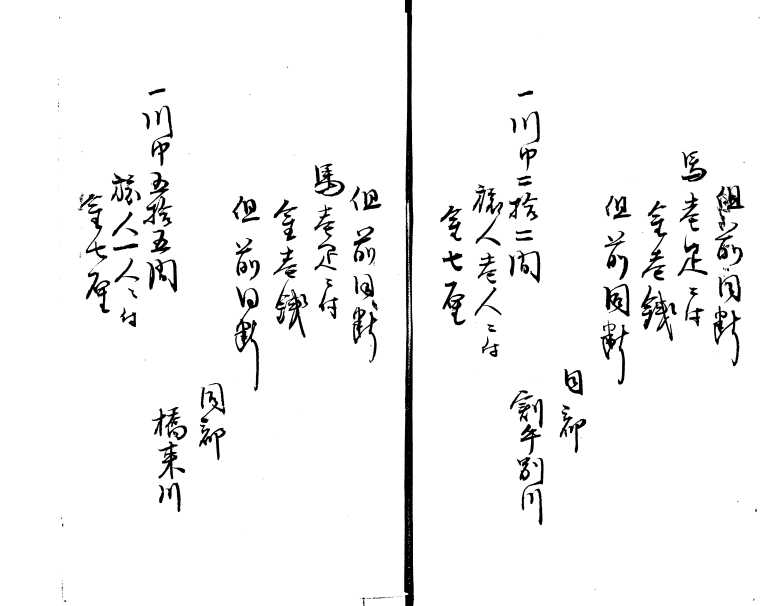 但前同断
馬壱疋ニ付
金壱銭
但前同断
同郡
劉牛別川
一川巾二拾二間
旅人壱人ニ付
金七厘
但前同断
馬壱疋ニ付
金壱銭
但前同断
同郡
橋来川
一川巾五拾五間
旅人一人ニ付
金七厘